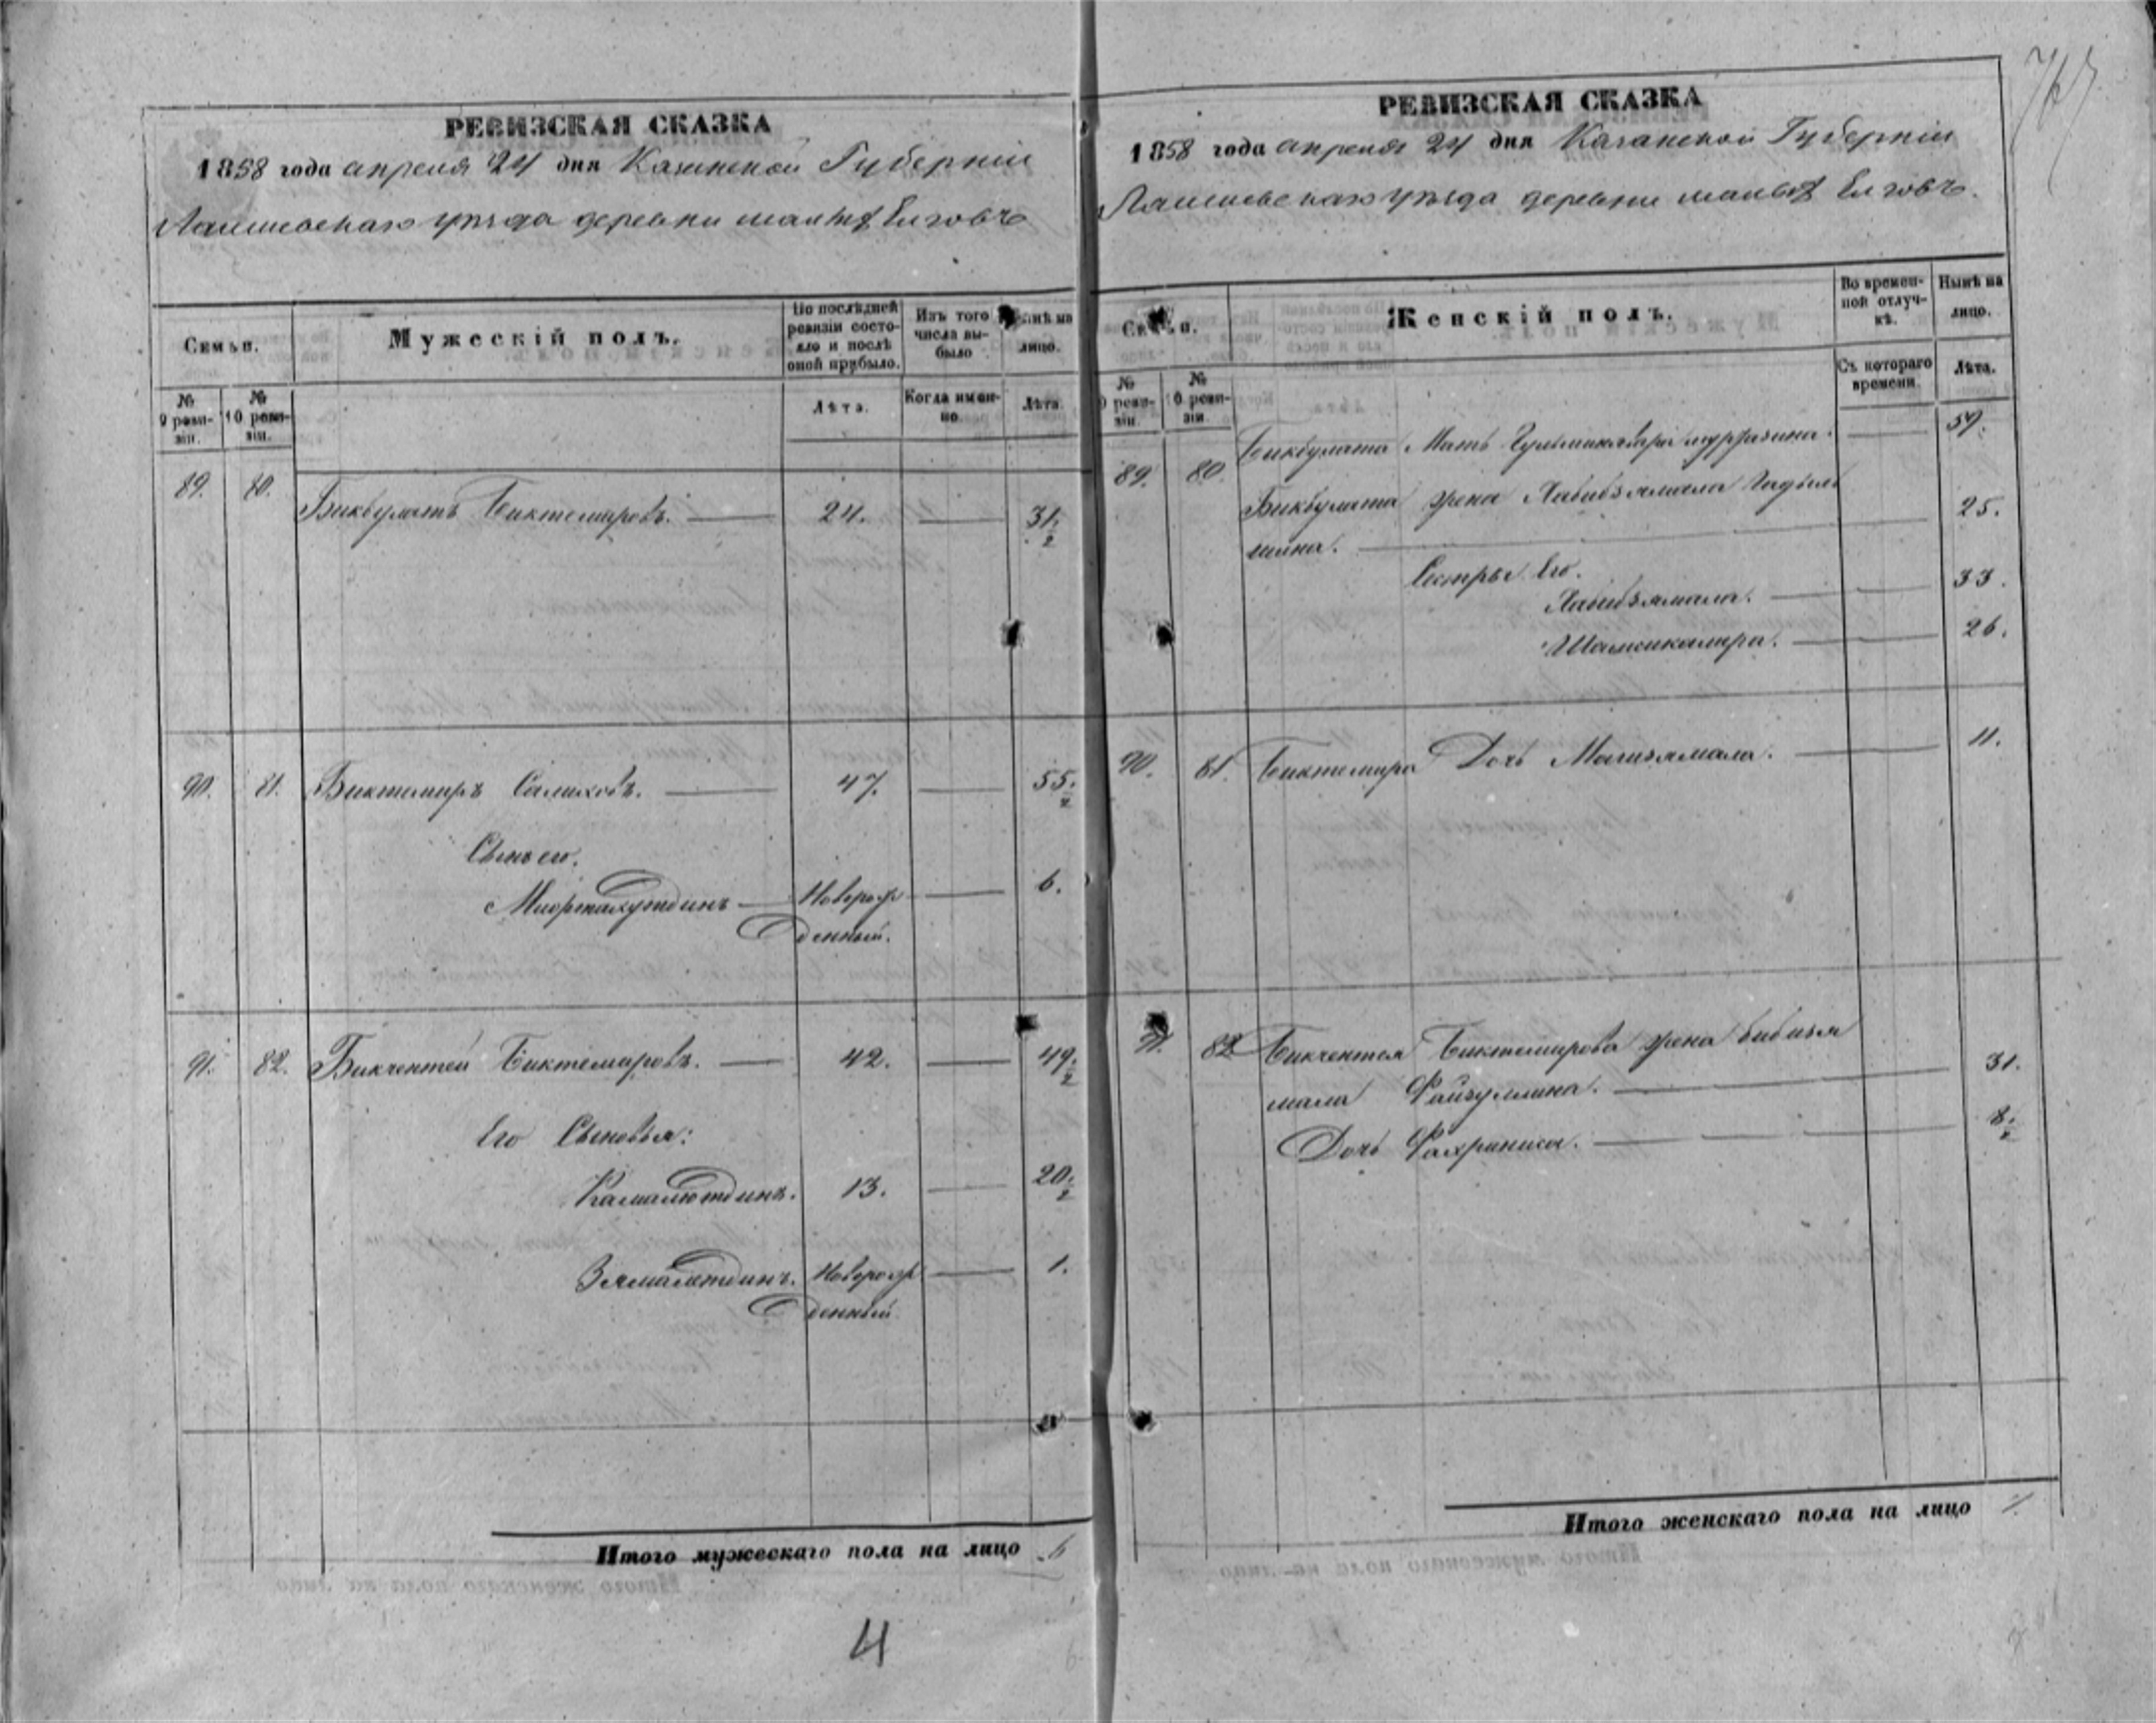 РЕВИЗСКАЯ СКАЗКА
1858 года апреля 24 дня Казанской Губерніи
Лаишевскаго уѣзда деревни малыхъ Елговъ
Семьи.
Мужескій полъ.
По послѣдней ревизіи состояло и послѣ оной прибыло.
Изъ того числа выбыло
Нынѣ на лицо.
№ 9 ревизіи.
№ 10 ревизіи.
Лѣта.
Когда именно.
Лѣта
89. 80. Бикбулатъ Биктемировъ. 24. 31 1/2
90. 81. Биктемиръ Салиховъ. 47. 55 1/2
Сынъ его.
Новорож
денный. 6.
91. 82. Бикчентей Биктемировъ. 42. 49 1/2
Его Сыновья:
Камалютдинъ. 13. 20 1/2
Зямалютдинъ. Новорож 1.
денный
Итого мужескаго пола на лицо 6
4
РЕВИЗСКАЯ СКАЗКА
1858 года апреля 24 дня Казанской Губерніи
Лаишевскаго уѣзда деревни малыхъ Елговъ.
Семьи.
Женскій полъ.
Во временной отлучкѣ.
Нынѣ на лицо.
№ 9 ревизіи.
№ 10 ревизіи.
Съ котораго времени.
Лѣта.
89. 80. Бикбулата Мать 59.
Бикбулата жена Хабибзямала Гадыль
шина. 25.
Сестры Его.
Хабибзямала. 33.
Шамсикамра. 26.
90. 81. Биктемира Дочь Магизямала. 11.
91. 82 Бикчентея Биктемирова жена Бибизя
мала Файзуллина. 31.
Дочь Фахраниса. 8 1/2
Итого женскаго пола на лицо 7.